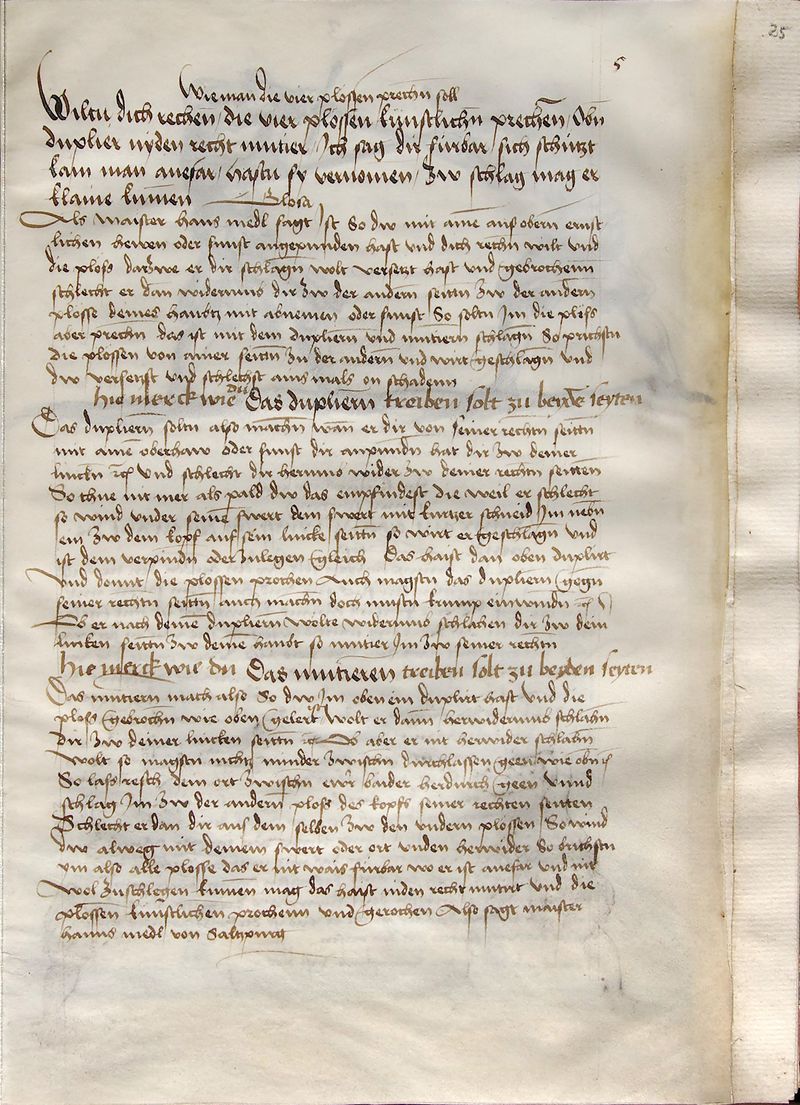 25
5
Wie man die vier plossen prechn soll
Wiltu dich rechen / die vier plossen künstlichn prechen / Obn
duplier nyden recht mutier / Ich sag dir fürbar / sich schützt
kain man anefar / hastu sy vernomen / zw schlag mag er
klaine kumen Glosa
Als maister hans medl sagt Ist So dw mit ainē auf obern ernst
lichen hewen oder sunst angepunden hast vnd dich rechn wilt vnd
die ploss darzwe er dir schlagn wolt versetzt hast vnd gebrochenn
schlecht er dan widerumb dir zw der andern seittn zw der andern
plosse deines haubtz mit abnemen oder sunst So soltu Im die pliss
aber prechn das ist mit dem dupliern vnd mutiern schlagn So prichstu
die plossen von ainer seittn zu der andern vnd wirt geschlagn vnd
dw versetzst vnd schlechst ains mals on schadenn
hie merck wie du Das dupliern treiben solt zu beyde seyten
Das dupliern soltu also machn wan er dir von seiner rechtn seittn
mit ainē oberhaw oder sunst dir anpindn hat dir zw deiner
linckn vnd schlecht dir herumb wider zw deiner rechtn seitten
So thue nit mer als pald dw das empfindest die weil er schlecht
so wind vnder seinē swert dem swert mit kurtzer schneid Im nebn
ein zw dem kopf auf sein lincke seittn so wirt er geschlagn vnd
ist dem verpindn oder zulegen gleich Das haist dan oben duplirt
vnd domit die plossen prochen Auch magstu das duplieren gegn
seiner rechtn seittn auch machn doch mustu krump einwindn
Ob er nach deinē dupliern wolte widerumb schlahen dir zw dem
lincken seittn zw deinē haubt so mutier Im zw seiner rechtn
hie merck wie du Das mutieren treiben solt zu beyden seyten
Das mutiern mach also So dw Im oben ein duplirt hast vnd die
ploss gebrochn wie oben gelert ist Wolt er dann herwiderumb schlahn
dir zw deiner lincken seittn Ob aber er nit herwider schlahn
wolt so magstu nicht minder zwischn durchlassen geen wie obn
So lass resch dem ort zwischn ewr baider herdurch geen vnnd
schlag Im zw der andern ploss des kopfs seiner rechten seitten
Schlecht er dan dir aus dem selben zw den vndern plossen So wind
dw alweg mit deinem swert oder ort vnden herwider So brichstu
Im also alle plosse das er nit wais fürbar wo er ist anefar vnd nit
wol zuschlegen kumen mag das haist niden recht mutirt vnd die
plossen künstlichen prochenn vnd gerochen Also sagt maister
hanns medl von Saltzpurg